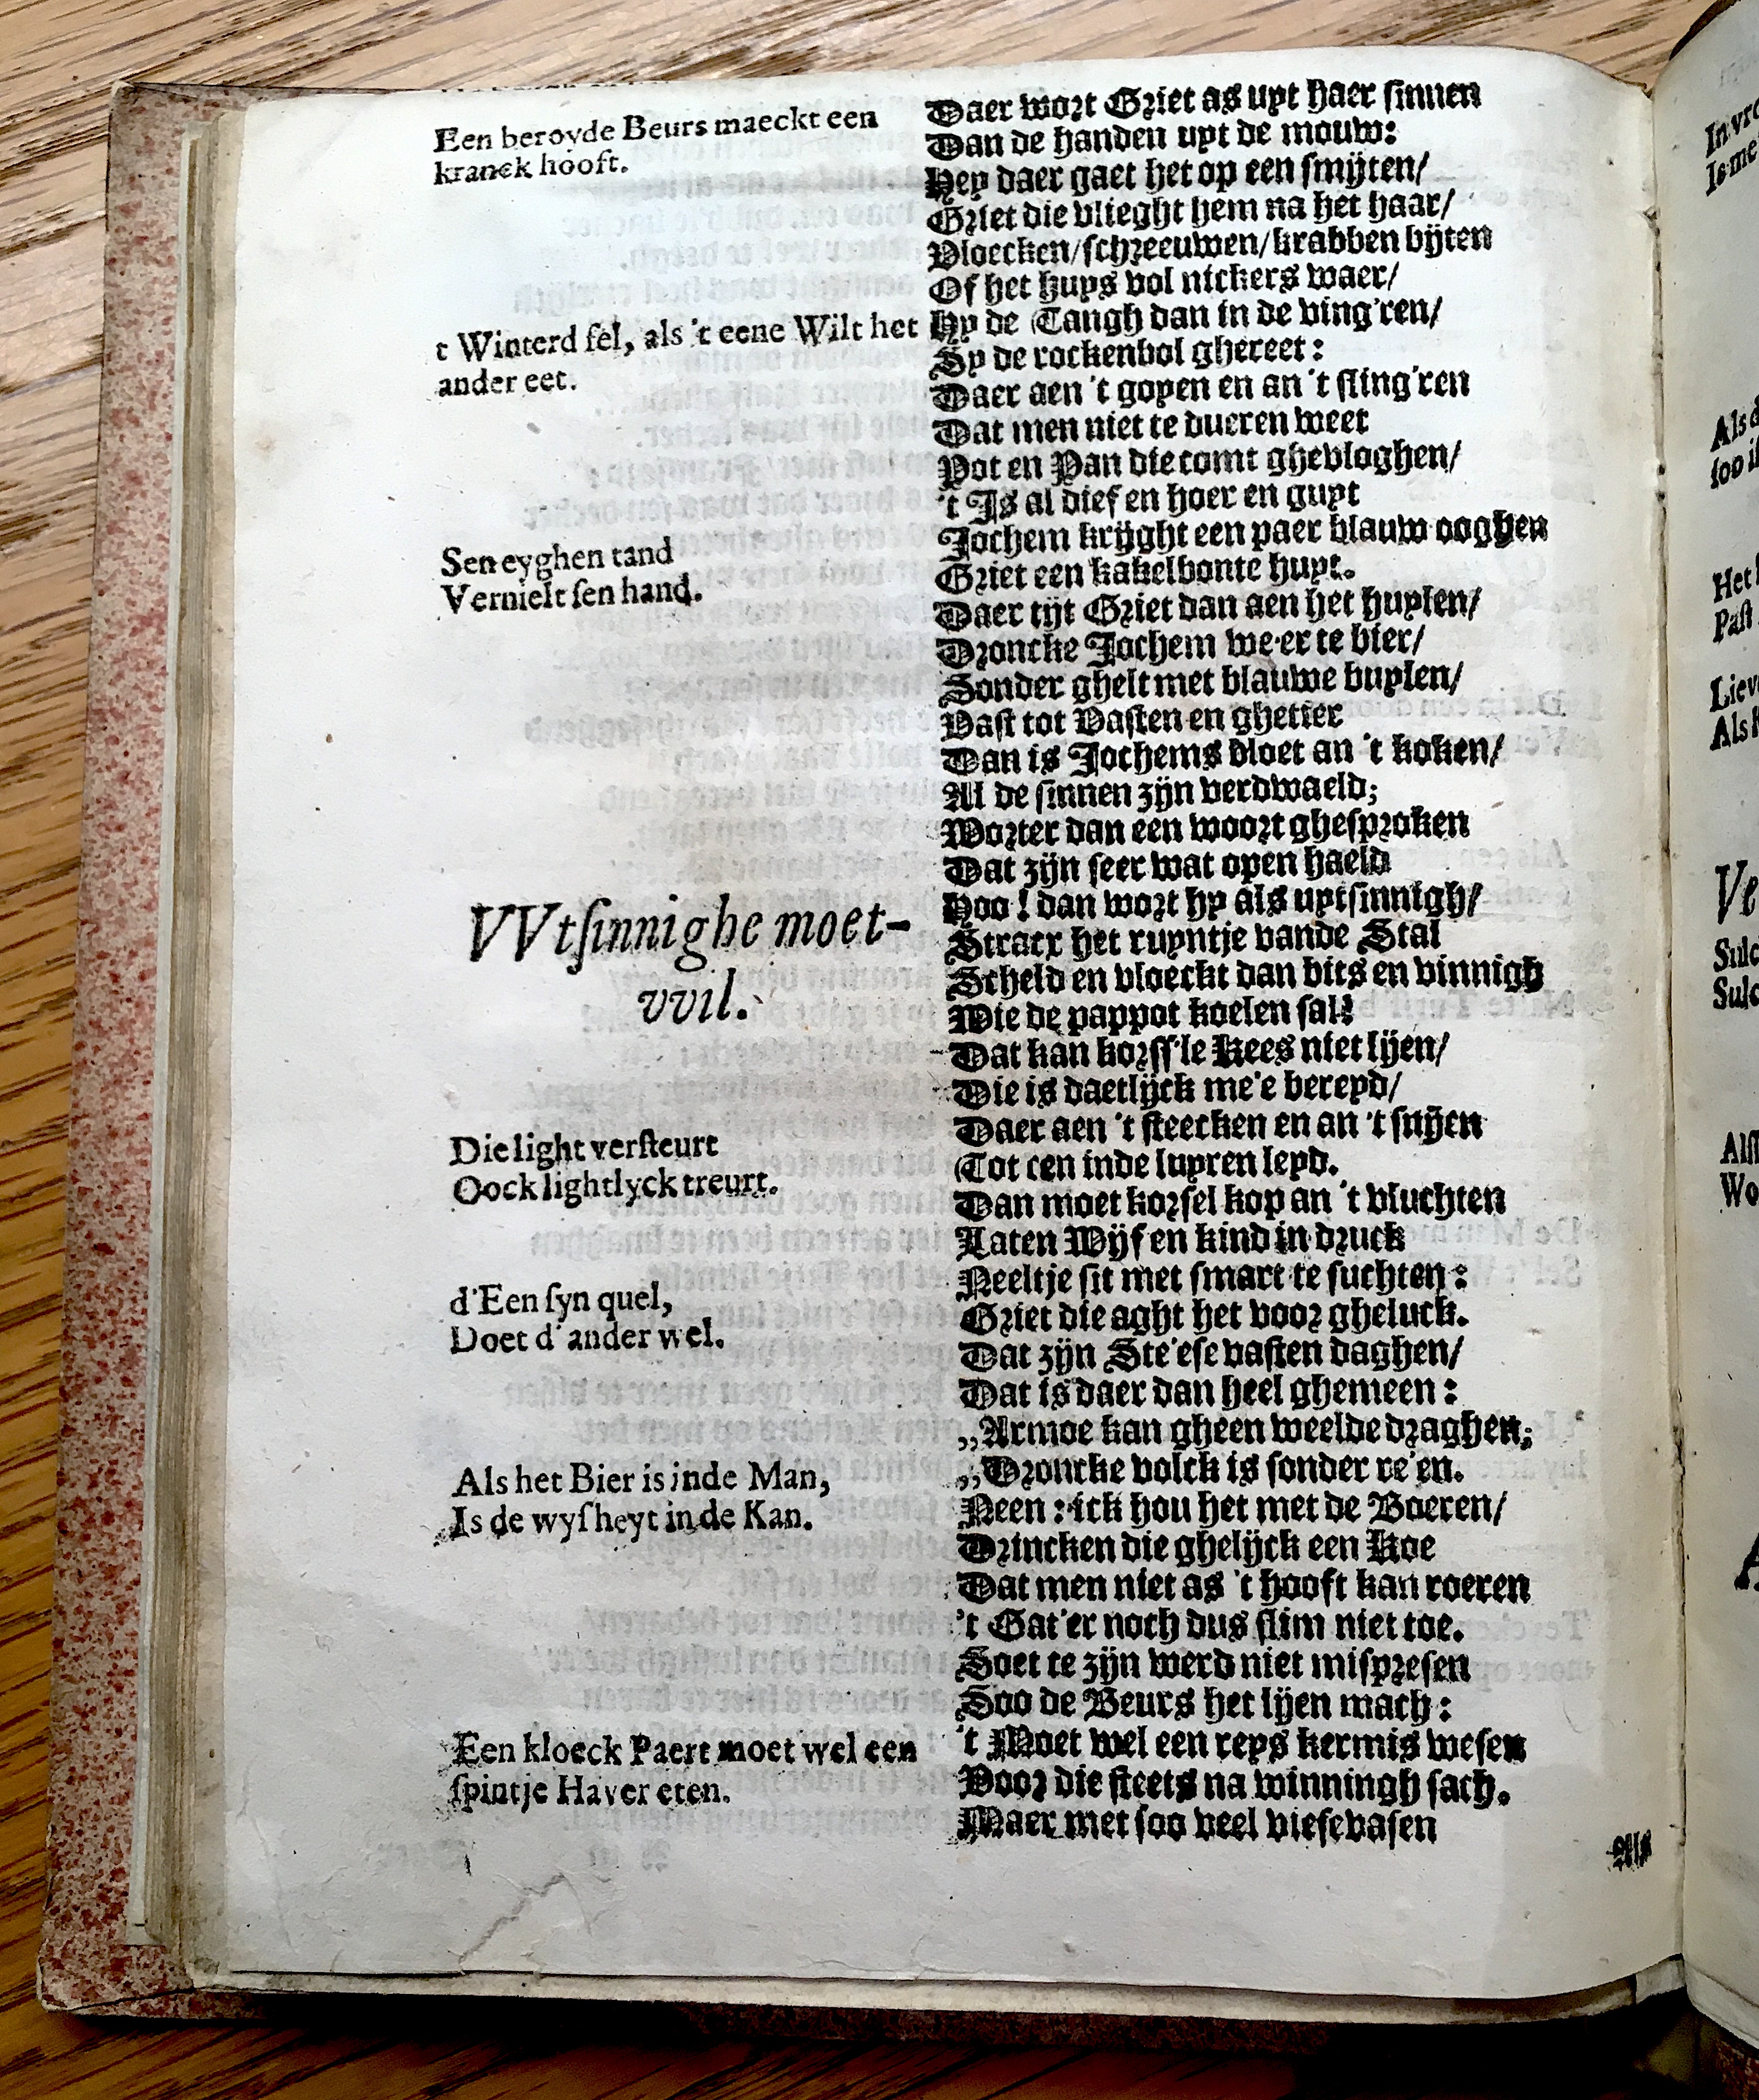 Een beroyde Beurs maeckt een
kranck hooft.
t Winterd fel, als 't eene Wilt het
ander eet.
Sen eyghen tand
Vernielt ſen hand.
VVtſinnighe moet-
vvil.
Die light verſteurt
Oock lightlyck treurt.
d'Een ſyn quel,
Doet d'ander wel.
Als het Bier is inde Man,
Is de wyſheyt inde Kan.
Een kloeck Paert moet wel een
ſpintje Haver eten.
Daer wort Griet as uyt haer ſinnen
Dan de handen uyt de mouw:
Hey daer gaet het op een ſmijten/
Griet die vlieght hem na het haar/
Vloecken/ſchreeuwen/krabben bijten
Of het huys vol nickers waer/
Hy de Tangh dan in de ving'ren/
Sy de rockenbol ghereet:
Daer aen 't goyen en an 't ſling'ren
Dat men niet te dueren weet
Pot en Pan die comt ghevloghen/
't Is al dief en hoer en guyt
Jochem krijght een paer blauw ooghen
Griet een kakelbonte huyt.
Daer tijt Griet dan aen het huylen/
Droncke Jochem we'er te bier/
Sonder ghelt met blauwe buylen/
Vaſt tot Vaſten en ghetier
Dan is Jochems bloet an 't koken/
Al de ſinnen zijn verdwaeld;
Worter dan een woort gheſproken
Dat zijn ſeer wat open haeld
Hoo! dan wort hy als uytſinnigh/
Stracx het ruyntje vande Stal
Scheld en vloeckt dan bits en vinnigh
Wie de pappot koelen ſal!
Dat kan korſſ'le Kees niet lijen/
Die is daetlijck me'e bereyd/
Daer aen 't ſteecken en an 't ſnijen
Tot een inde luyren leyd.
Dan moet korſel kop an 't vluchten
Laten Wijf en kind in druck
Neeltje ſit met ſmart te ſuchten:
Griet die aght het voor gheluck.
Dat zijn Ste'eſe vaſten daghen/
Dat is daer dan heel ghemeen:
„Armoe kan gheen weelde draghen;
„Droncke volck is ſonder re'en.
Neen: ick hou het met de Boeren/
Drincken die ghelijck een Koe
Dat men niet as 't hooft kan roeren
't Gat'er noch dus ſlim niet toe.
Soet te zijn werd niet miſpreſen
Soo de Beurs het lijen mach:
't Moet wel een reys kermis weſen
Voor die ſteets na winningh ſach.
Maer met ſoo veel vieſevaſen